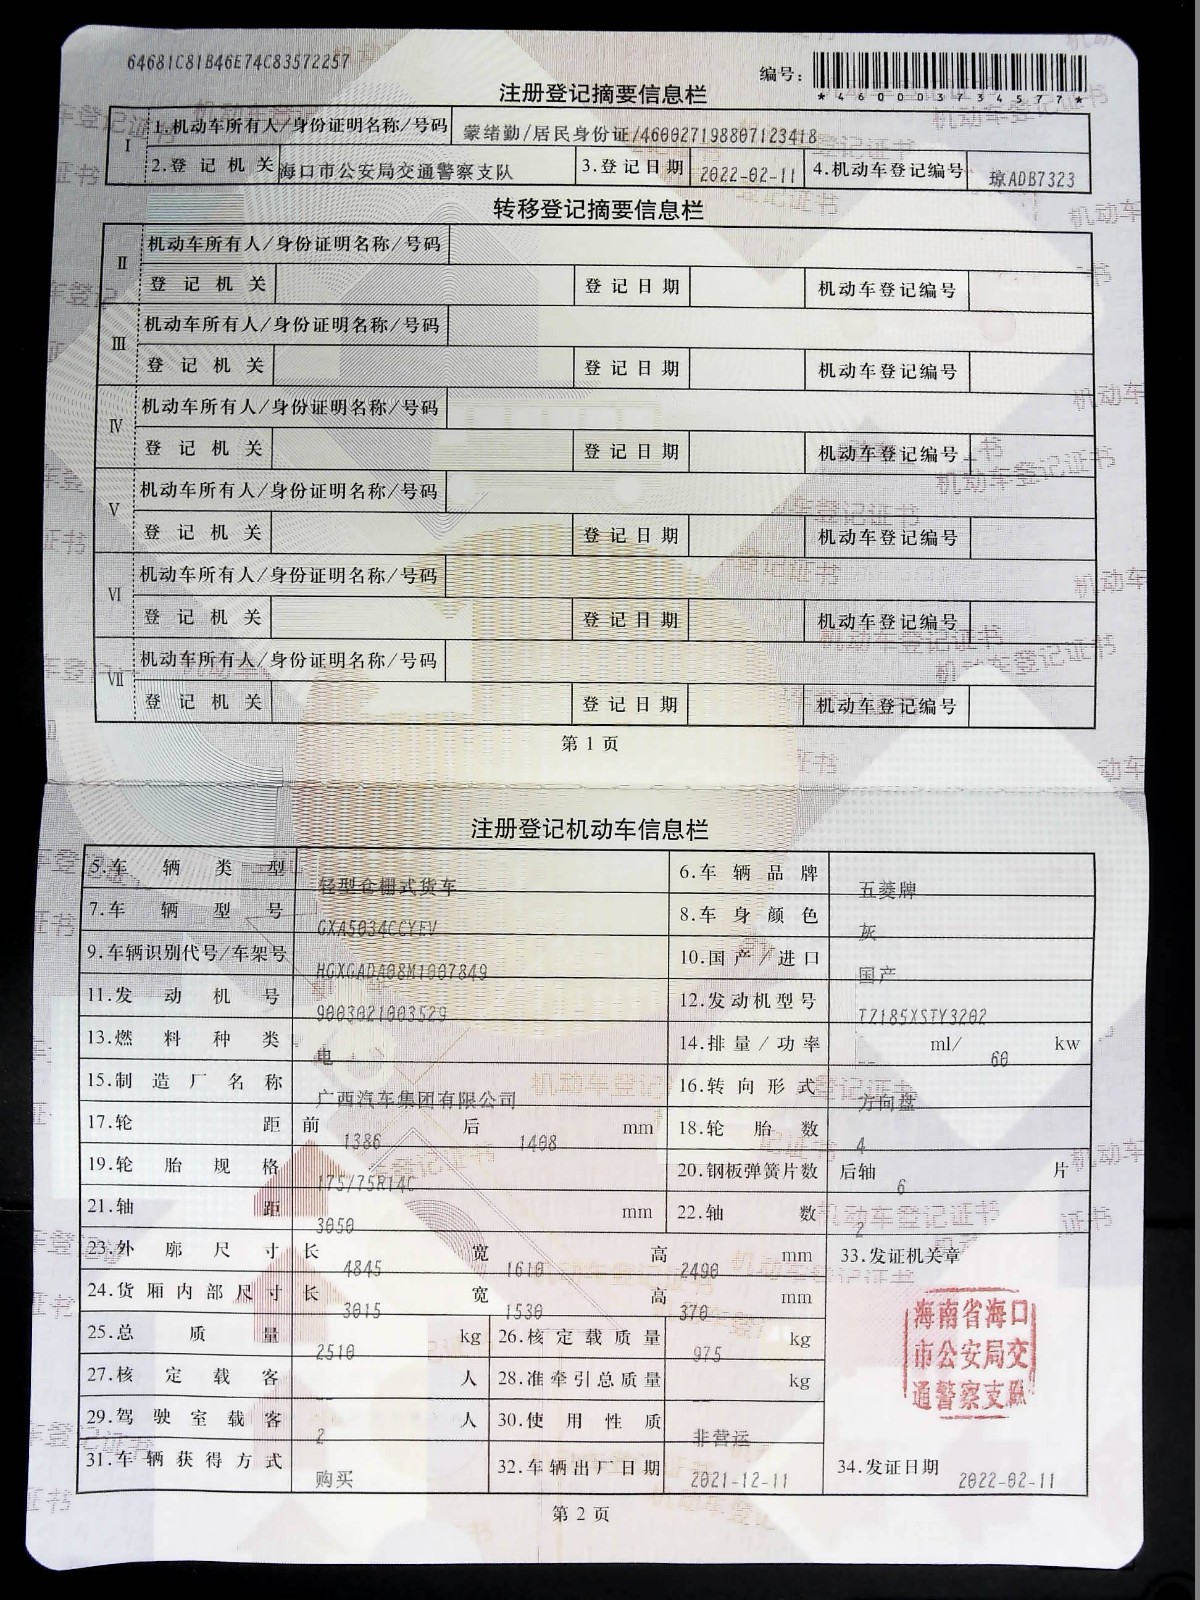 64681C81B46E74C83572257
编号：
*460003734577*
注册登记摘要信息栏
I 1.机动车所有人/身份证明名称/号码 蒙绪勤/居民身份证/460027198807123418
2.登记机关 海口市公安局交通警察支队 3.登记日期 2022-02-11 4.机动车登记编号 琼ADB7323
转移登记摘要信息栏
II 机动车所有人/身份证明名称/号码
登记机关 登记日期 机动车登记编号
III 机动车所有人/身份证明名称/号码
登记机关 登记日期 机动车登记编号
IV 机动车所有人/身份证明名称/号码
登记机关 登记日期 机动车登记编号
V 机动车所有人/身份证明名称/号码
登记机关 登记日期 机动车登记编号
VI 机动车所有人/身份证明名称/号码
登记机关 登记日期 机动车登记编号
VII 机动车所有人/身份证明名称/号码
登记机关 登记日期 机动车登记编号
第1页
注册登记机动车信息栏
5.车辆类型 轻型仓栅式货车 6.车辆品牌 五菱牌
7.车辆型号 GXA5034CCYEV 8.车身颜色 灰
9.车辆识别代号/车架号 HGXGADA08M1007849 10.国产/进口 国产
11.发动机号 9003021003529 12.发动机型号 TZ185XSTY3202
13.燃料种类 电 14.排量/功率 -- ml/ 60 kw
15.制造厂名称 广西汽车集团有限公司 16.转向形式 方向盘
17.轮距 前 1386 后 1408 mm 18.轮胎数 4
19.轮胎规格 175/75R14C 20.钢板弹簧片数 后轴 6 片
21.轴距 3050 mm 22.轴数 2
23.外廓尺寸 长 4845 宽 1610 高 2490 mm 33.发证机关章
24.货厢内部尺寸 长 3015 宽 1530 高 370 mm
25.总质量 2510 kg 26.核定载质量 975 kg
27.核定载客 -- 人 28.准牵引总质量 -- kg
29.驾驶室载客 2 人 30.使用性质 非营运
31.车辆获得方式 购买 32.车辆出厂日期 2021-12-11 34.发证日期 2022-02-11
海南省海口
市公安局交
通警察支队
第2页